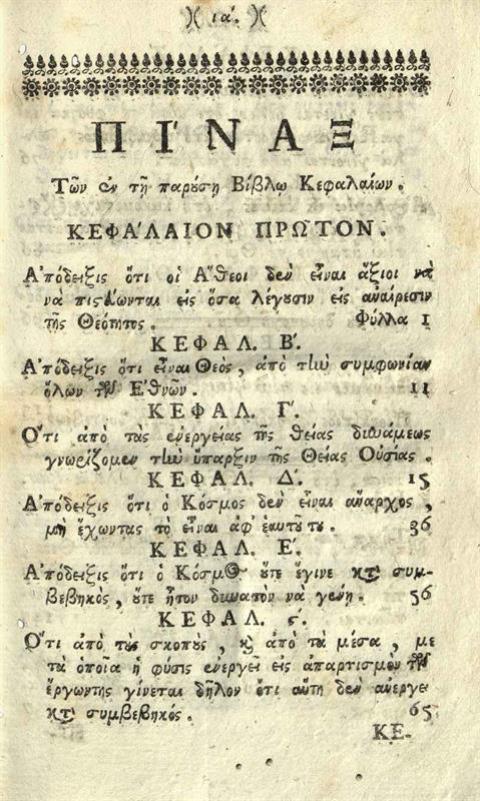 )( ια΄. )(
ΠΙ΄ΝΑΞ
Τῶν ἐν τῇ παρούσῃ Βίβλῳ Κεφαλαίων.
ΚΕΦΑ΄ΛΑΙΟΝ ΠΡΩ͂ΤΟΝ.
Α᾿πόδειξις ὅτι οἱ Α῎θεοι δεν εἶναι ἄξιοι νὰ
να πιστεύωνται εἰς ὅσα λέγουσιν εἰς ἀναίρεσιν
τῆς Θεότητος. Φύλλα 1
ΚΕΦΑΛ. Β΄.
Α᾿πόδειξις ὅτι εἶναι Θεὸς, ἀπὸ τὴν συμφωνίαν
ὅλων τῶν Ε᾿θνῶν. 11
ΚΕΦΑΛ. Γ΄.
Ο῞τι ἀπὸ τὰς ἐνεργείας τῆς θείας δυνάμεως
γνωρίζομεν τὴν ὕπαρξιν τῆς Θείας Οὐσίας.
ΚΕΦΑΛ. Δ΄. 15
Α᾿πόδειξις ὅτι ὁ Κόσμος δεν εἶναι ἄναρχος,
μὴ ἔχωντας τὸ εἶναι ἀφ᾿ ἑαυτοῦ του. 36
ΚΕΦΑΛ. Ε΄.
Α᾿πόδειξις ὅτι ὁ Κόσμος οὔτε ἔγινε κατὰ συμ-
βεβηκὸς, οὔτε ἦτον δυνατὸν νὰ γένῃ. 56
ΚΕΦΑΛ. ς΄.
Ο῞τι ἀπὸ τοὺς σκοποὺς, καὶ ἀπὸ τὰ μέσα, με
τὰ ὁποῖα ἡ φύσις ἐνεργεῖ εἰς ἀπαρτισμὸν τῶν
ἔργωντης γίνεται δῆλον ὅτι αὕτη δεν ἀνεργεῖ
κατὰ συμβεβηκός. 65
ΚΕ-